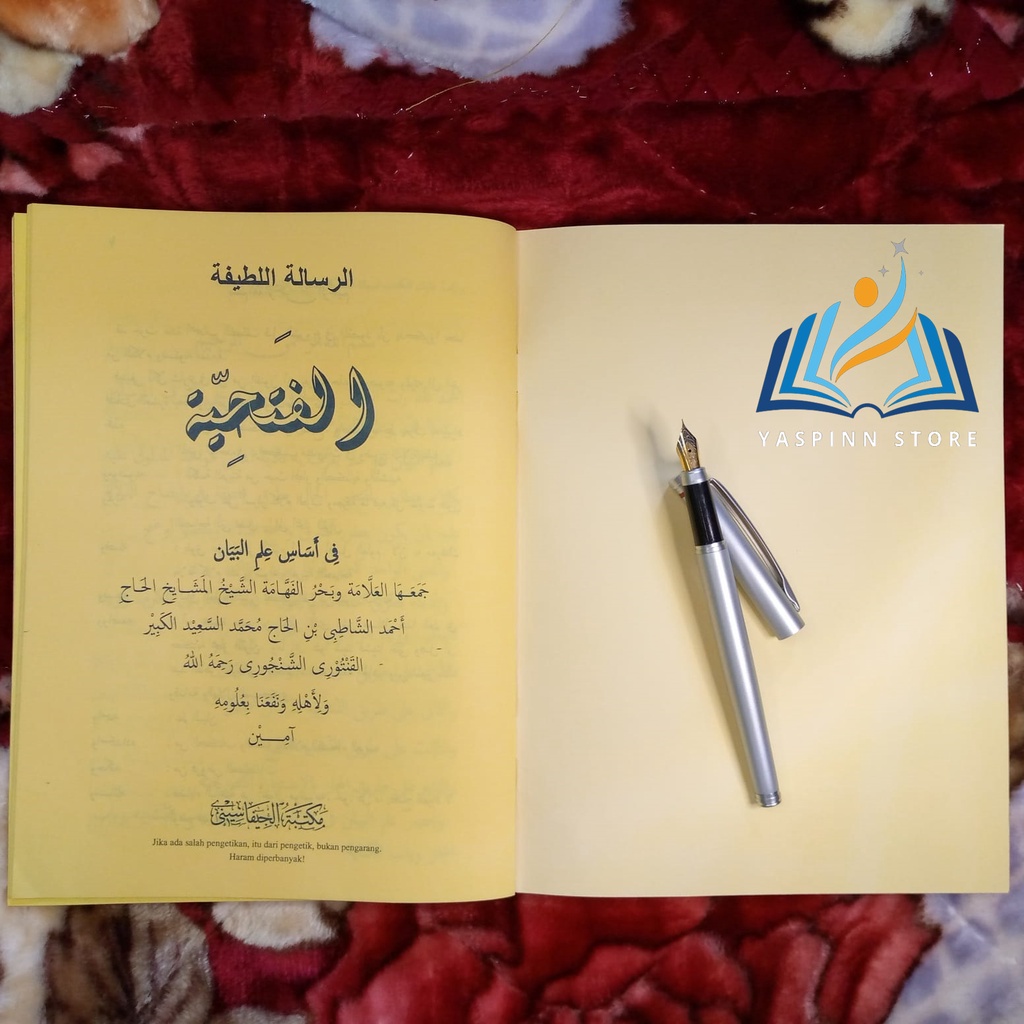 الرسالة اللطيفة
الفَتَحِيَّة
فِى أَسَاسِ عِلمِ البَيَان
جَمَعَهَا العَلَّامَة وبَحْرُ الفَهَّامَة الشَّيْخُ المَشَايِخِ الحَاجِ
أَحْمَد الشَّاطِبِى بْنِ الحَاج مُحَمَّد السَّعِيْد الكَبِيْر
القَنْتُوْرِى الشَّنْجُوْرِى رَحِمَهُ اللهُ
وَلِأَهْلِهِ وَنَفَعَنَا بِعُلُومِهِ
آمِـــيْن
مَكْتَبَةُ
Jika ada salah pengetikan, itu dari pengetik, bukan pengarang.
Haram diperbanyak!
YASPINN STORE